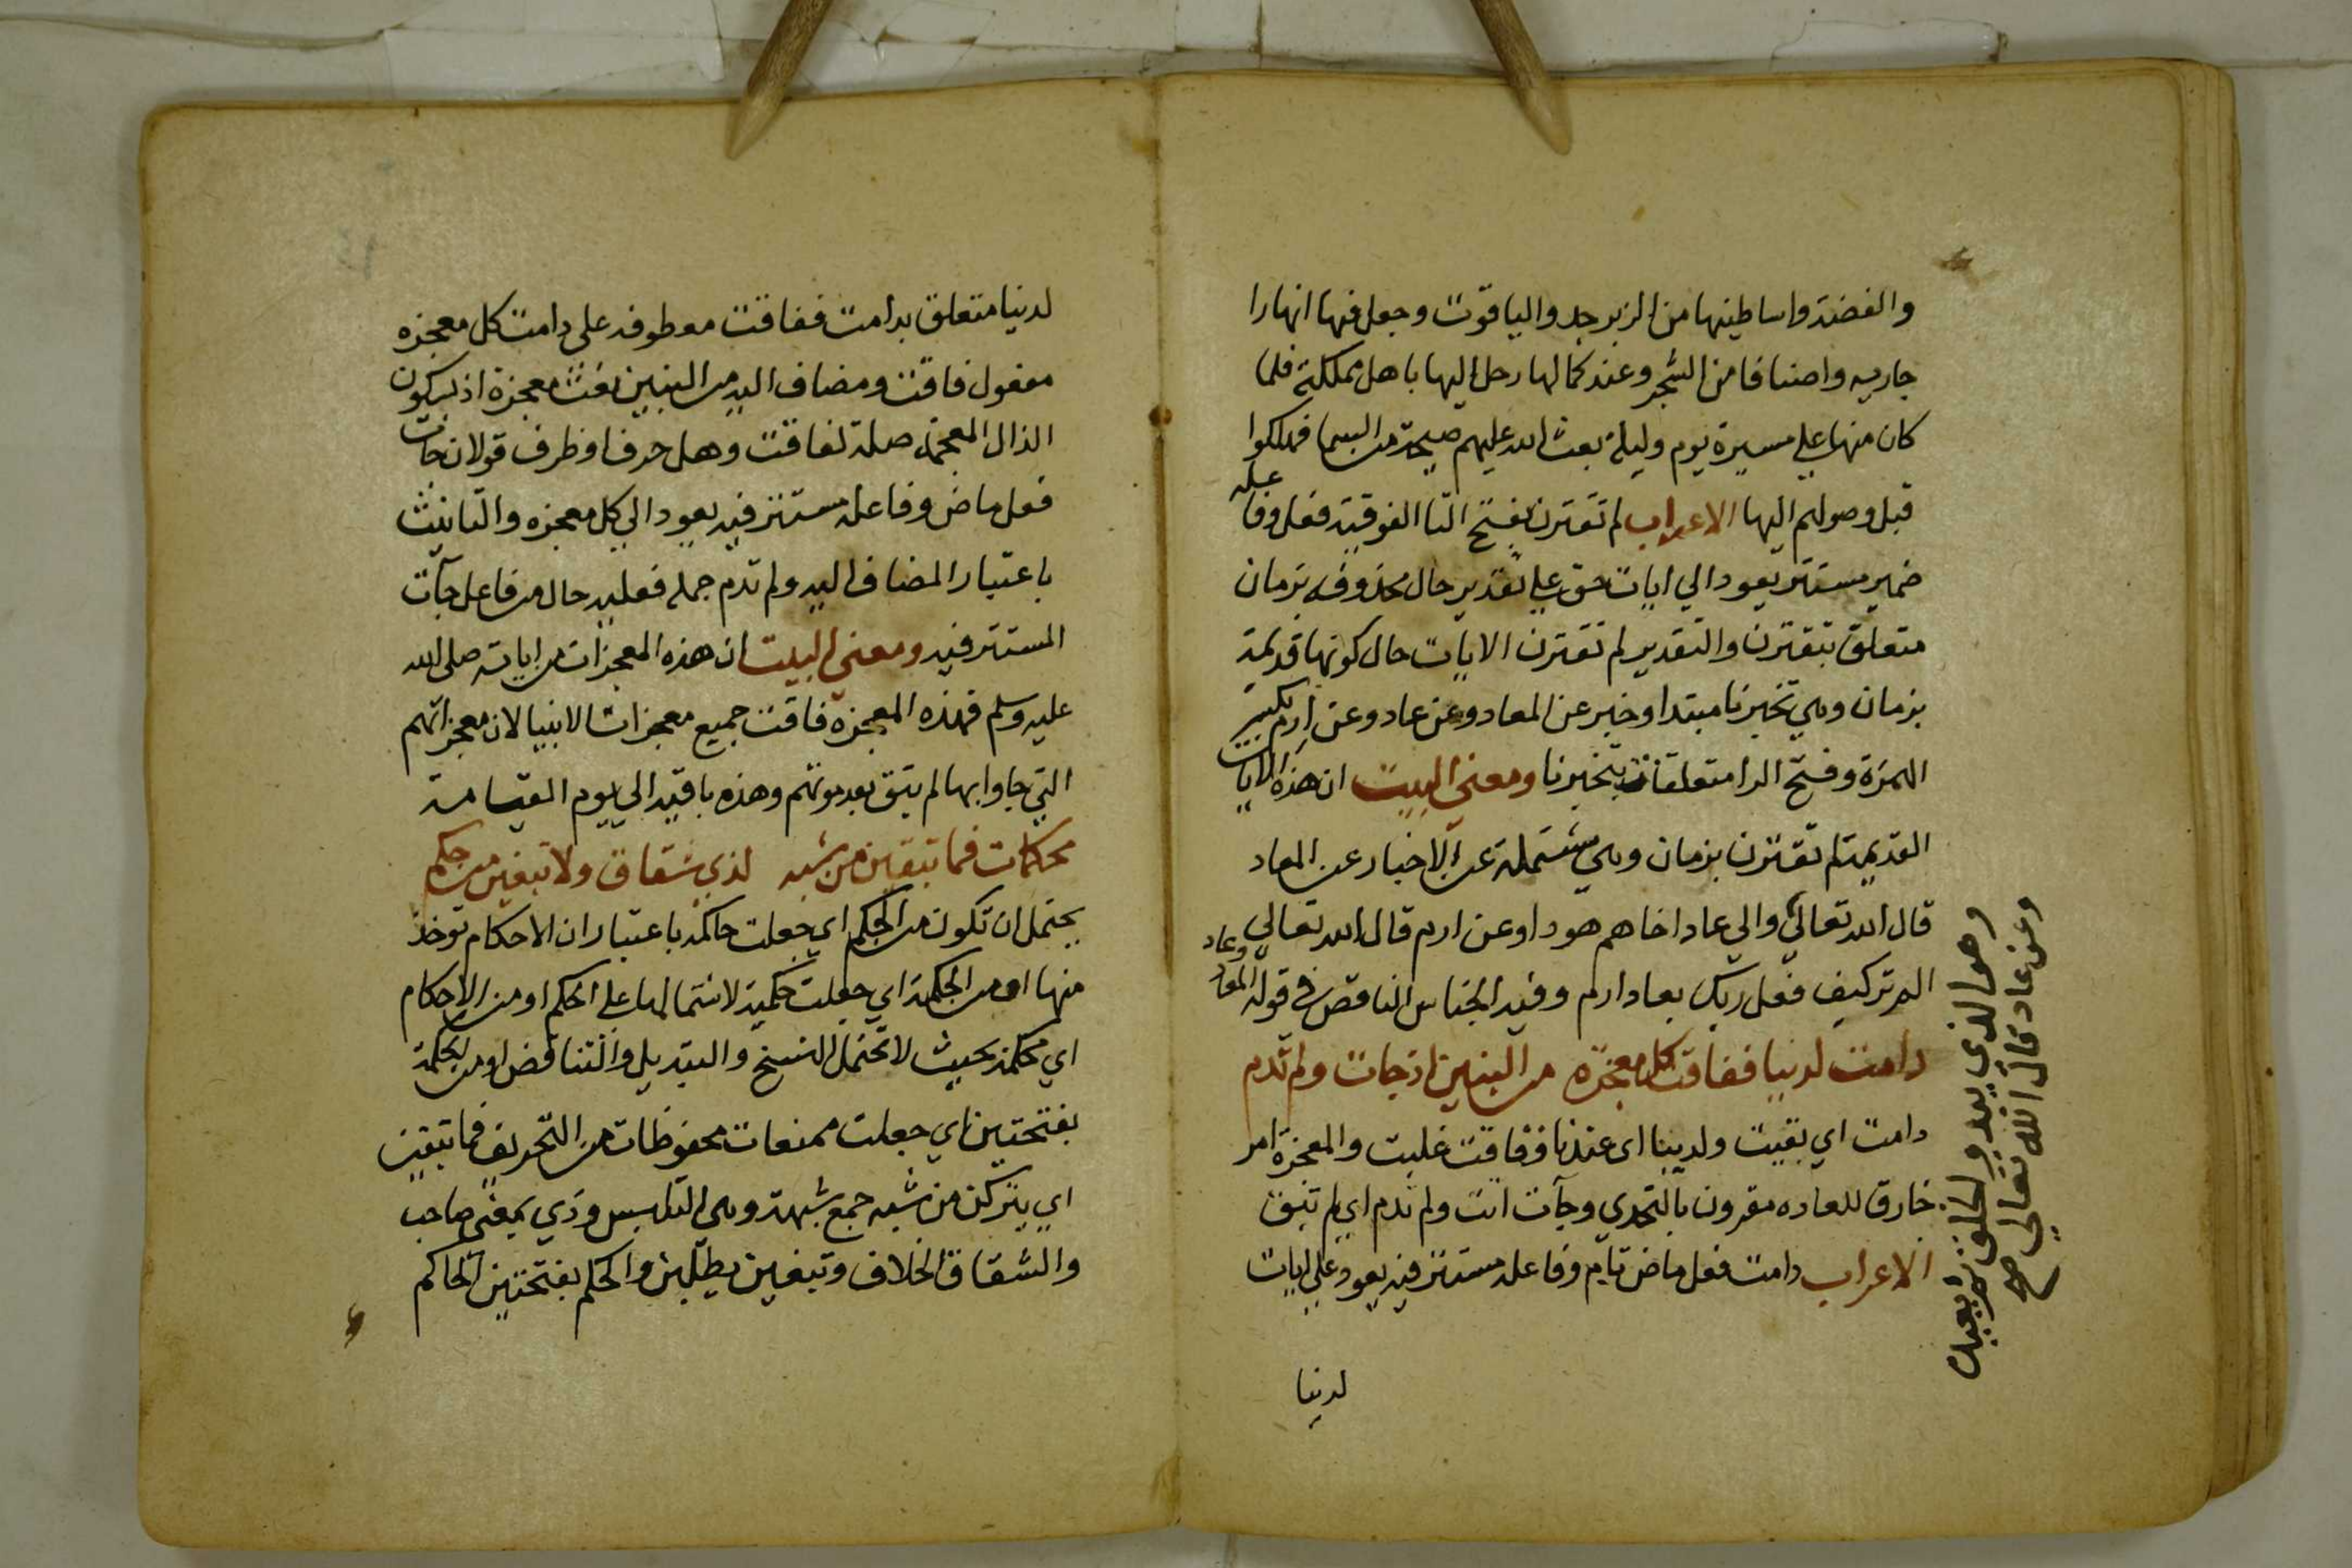 والفضة واساطينها من الزبرجد والياقوت وجعل فيها انهارا
جاريه واصنافا من الشجر وعند كمالها رحل اليها باهل مملكته فلما
كان منها علي مسيرة يوم وليلة بعث الله عليهم صيحة من السما فهلكوا
قبل وصولهم اليها الاعراب لم تقترن بفتح التا الفوقية فعل وفاعله
ضمير مستتر يعود الي ايات حق علي تقدير حال محذوفه بزمان
متعلق بتقترن والتقدير لم تقترن الايات حال كونها قديمة
بزمان وهي تخبرنا مبتدا وخبر عن المعاد وعن عاد وعن ارم بكسر
الهمزة وفتح الرا متعلقات بتخبرنا ومعني البيت ان هذه الايات
القديمة لم تقترن بزمان وهي مشتملة عن الاخبار عن المعاد
قال الله تعالي والي عاد اخاهم هودا وعن ارم قال الله تعالي
الم تر كيف فعل ربك بعاد ارم وفيه الجناس الناقص في قوله المعاد وعاد
دامت لدينا ففاقت كل معجزة من النبيين اذ جات ولم تدم
دامت اي بقيت ولدينا اي عندنا ففاقت غلبت والمعجزة امر
خارق للعاده مقرون بالتحدي وجآت اتت ولم تدم اي لم تبق
الاعراب دامت فعل ماض تام وفاعله مستتر فيه يعود علي ايات
لدينا
وهو الذي يبدو الخلق ثم يعيده
وعن عاد قال الله تعالي صح
لدينا متعلق بدامت ففاقت معطوفه علي دامت كل معجزه
مفعول فاقت ومضاف اليه من النبيين نعت معجزة اذ بسكون
الذال المعجمة صلة لفاقت وهل حرف او ظرف قولان جات
فعل ماض وفاعله مستتر فيه يعود الي كل معجزه والتانيث
باعتبار المضاف اليه ولم تدم جمله فعليه حال من فاعل جآت
المستتر فيه ومعني البيت ان هذه المعجزات من اياته صلى الله
عليه وسلم فهذه المعجزه فاقت جميع معجزات الانبيا لان معجزاتهم
التي جاوا بها لم تبق بعد موتهم وهذه باقيه الي يوم القيامة
محكمات فما تبقين من شبه لذي شقاق ولا تبغين من حكم
يحتمل ان تكون من الحكم اي جعلت حاكمه باعتبار ان الاحكام توخذ
منها او من الحكمة اي جعلت حكمية لاشتمالها علي الحكم او من الاحكام
اي محكمة بحيث لا تحتمل النسخ والتبديل والتناقض او من الحكمة
بفتحتين اي جعلت ممنعات محفوظات من التحريف فما تبقين
اي يتركن من شبه جمع شبهة وهي التلبيس وذي بمعنى صاحب
والشقاق الخلاف وتبغين يطلبن والحكم بفتحتين الحاكم